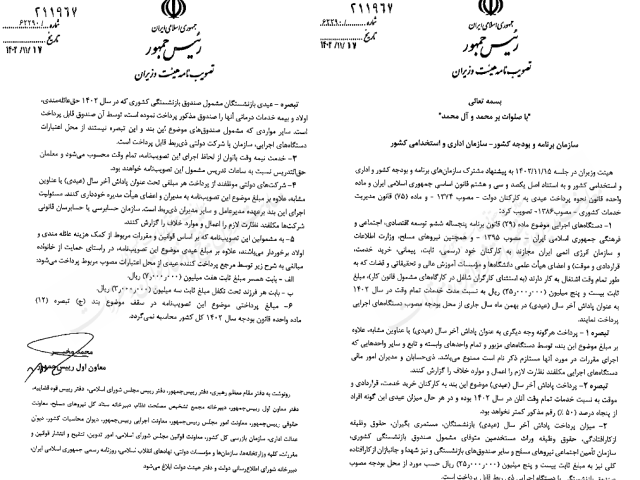 ۲۱۱۹۶۷
شماره ........../۶۲۲۹۰
تاریخ ۱۴۰۲/۱۱/۱۷
جمهوری اسلامی ایران
رئیس جمهور
تصویب نامه هیئت وزیران
بسمه تعالی
"با صلوات بر محمد و آل محمد"
سازمان برنامه و بودجه کشور – سازمان اداری و استخدامی کشور
هیئت وزیران در جلسه ۱۴۰۲/۱۱/۱۵ به پیشنهاد مشترک سازمان‌های برنامه و بودجه کشور و اداری
و استخدامی کشور و به استناد اصل یکصد و سی و هشتم قانون اساسی جمهوری اسلامی ایران و ماده
واحده قانون نحوه پرداخت عیدی به کارکنان دولت - مصوب ۱۳۷۴ - و ماده (۷۵) قانون مدیریت
خدمات کشوری - مصوب ۱۳۸۶- تصویب کرد:
۱- دستگاه‌های اجرایی موضوع ماده (۲۹) قانون برنامه پنجساله ششم توسعه اقتصادی، اجتماعی و
فرهنگی جمهوری اسلامی ایران - مصوب ۱۳۹۵ - و همچنین نیروهای مسلح، وزارت اطلاعات
و سازمان انرژی اتمی ایران مجازند به کارکنان خود (رسمی، ثابت، پیمانی، خرید خدمت،
قراردادی و موقت) و اعضای هیأت علمی دانشگاه‌ها و مؤسسات آموزش عالی و تحقیقاتی و قضات که به
طور تمام وقت اشتغال به کار دارند (به استثنای کارگران شاغل در کارگاه‌های مشمول قانون کار)، مبلغ
ثابت بیست و پنج میلیون (۲۵٫۰۰۰٫۰۰۰) ریال به نسبت مدت خدمات تمام وقت در سال ۱۴۰۲
به عنوان پاداش آخر سال (عیدی) در بهمن ماه سال جاری از محل بودجه مصوب دستگاه‌های اجرایی
پرداخت نمایند.
تبصره ۱- پرداخت هرگونه وجه دیگری به عنوان پاداش آخر سال (عیدی) یا عناوین مشابه، علاوه
بر مبلغ موضوع این بند، توسط دستگاه‌های مزبور و تمام واحدهای وابسته و تابع و سایر واحدهایی که
اجرای مقررات در مورد آنها مستلزم ذکر نام است ممنوع می‌باشد. ذی‌حسابان و مدیران امور مالی
دستگاه‌های اجرایی مکلفند نظارت لازم را اعمال و موارد خلاف را گزارش کنند.
تبصره ۲- پرداخت پاداش آخر سال (عیدی) موضوع این بند به کارکنان خرید خدمت، قراردادی و
موقت به نسبت خدمات تمام وقت آنان در سال ۱۴۰۲ بوده و در هر حال میزان عیدی این گونه افراد
از پنجاه درصد (۵۰٪) رقم مذکور کمتر نخواهد بود.
۲- میزان پرداخت پاداش آخر سال (عیدی) بازنشستگان، مستمری بگیران، حقوق وظیفه
ازکارافتادگی، حقوق وظیفه وراث مستخدمین متوفای مشمول صندوق بازنشستگی کشوری،
سازمان تأمین اجتماعی نیروهای مسلح و سایر صندوق‌های بازنشستگی و نیز شهدا و جانبازان ازکارافتاده
کلی نیز به مبلغ ثابت بیست و پنج میلیون (۲۵٫۰۰۰٫۰۰۰) ریال حسب مورد از محل بودجه مصوب
صندوق بازنشستگی یا دستگاه اجرایی ذی ربط قابل پرداخت است.
۲۱۱۹۶۷
شماره ........../۶۲۲۹۰
تاریخ ۱۴۰۲/۱۱/۱۷
جمهوری اسلامی ایران
رئیس جمهور
تصویب نامه هیئت وزیران
تبصره - عیدی بازنشستگان مشمول صندوق بازنشستگی کشوری که در سال ۱۴۰۲ حق عائله‌مندی،
اولاد و بیمه خدمات درمانی آنها را صندوق یادشده پرداخت نموده است، توسط آن صندوق قابل پرداخت
است. سایر مواردی که مشمول صندوق‌های موضوع این بند و این تبصره نیستند از محل اعتبارات
دستگاه‌های اجرایی، سازمان یا شرکت دولتی ذی‌ربط قابل پرداخت است.
۳- خدمت نیمه وقت بانوان از لحاظ اجرای این تصویب‌نامه، تمام وقت محسوب می‌شود و معلمان
حق‌التدریس نسبت به ساعات تدریس مشمول این تصویب‌نامه خواهند بود.
۴- شرکت‌های دولتی موظفند از پرداخت هر مبلغی تحت عنوان پاداش آخر سال (عیدی) یا عناوین
مشابه علاوه بر مبلغ موضوع این تصویب‌نامه به مدیران و اعضای هیأت مدیره خودداری کنند. مسئولیت
اجرای این بند برعهده مدیرعامل و سایر مدیران ذی‌ربط است. سازمان حسابرسی یا حسابرسان قانونی
شرکت‌ها مکلفند نظارت لازم را اعمال و موارد خلاف را گزارش کنند.
۵- به مشمولین این تصویب‌نامه که بر اساس قوانین و مقررات مربوط از کمک هزینه عائله مندی و
اولاد برخوردار می‌باشند، علاوه بر مبلغ عیدی موضوع این تصویب‌نامه، در راستای حمایت از خانواده
مبالغی به شرح زیر توسط مرجع پرداخت کننده عیدی از محل اعتبارات مصوب مربوط پرداخت می‌شود:
الف - بابت همسر مبلغ ثابت هفت میلیون (۷٫۰۰۰٫۰۰۰) ریال.
ب - بابت هر فرزند تحت تکفل مبلغ ثابت سه میلیون (۳٫۰۰۰٫۰۰۰) ریال
۶- مبالغ پرداختی موضوع این تصویب‌نامه در سقف موضوع بند (ج) تبصره (۱۲)
ماده واحده قانون بودجه سال ۱۴۰۲ کل کشور محاسبه نمی‌گردد.
محمد مخبر
معاون اول رییس جمهور
رونوشت به دفتر مقام معظم رهبری، دفتر رییس‌جمهور، دفتر رییس مجلس شورای اسلامی، دفتر رییس قوه قضاییه،
دفتر معاون اول رییس‌جمهور، دبیرخانه مجمع تشخیص مصلحت نظام، دبیرخانه ستاد کل نیروهای مسلح، معاونت
حقوقی رییس‌جمهور، معاونت امور مجلس رییس‌جمهور، معاونت اجرایی رییس‌جمهور، دیوان محاسبات کشور، دیوان
عدالت اداری، سازمان بازرسی کل کشور، معاونت قوانین مجلس شورای اسلامی، امور تدوین، تنقیح و انتشار قوانین و
مقررات، کلیه وزارتخانه‌ها، سازمان‌ها و مؤسسات دولتی، نهادهای انقلاب اسلامی، روزنامه رسمی جمهوری اسلامی ایران،
دبیرخانه شورای اطلاع‌رسانی دولت و دفتر هیئت دولت ابلاغ می‌شود.